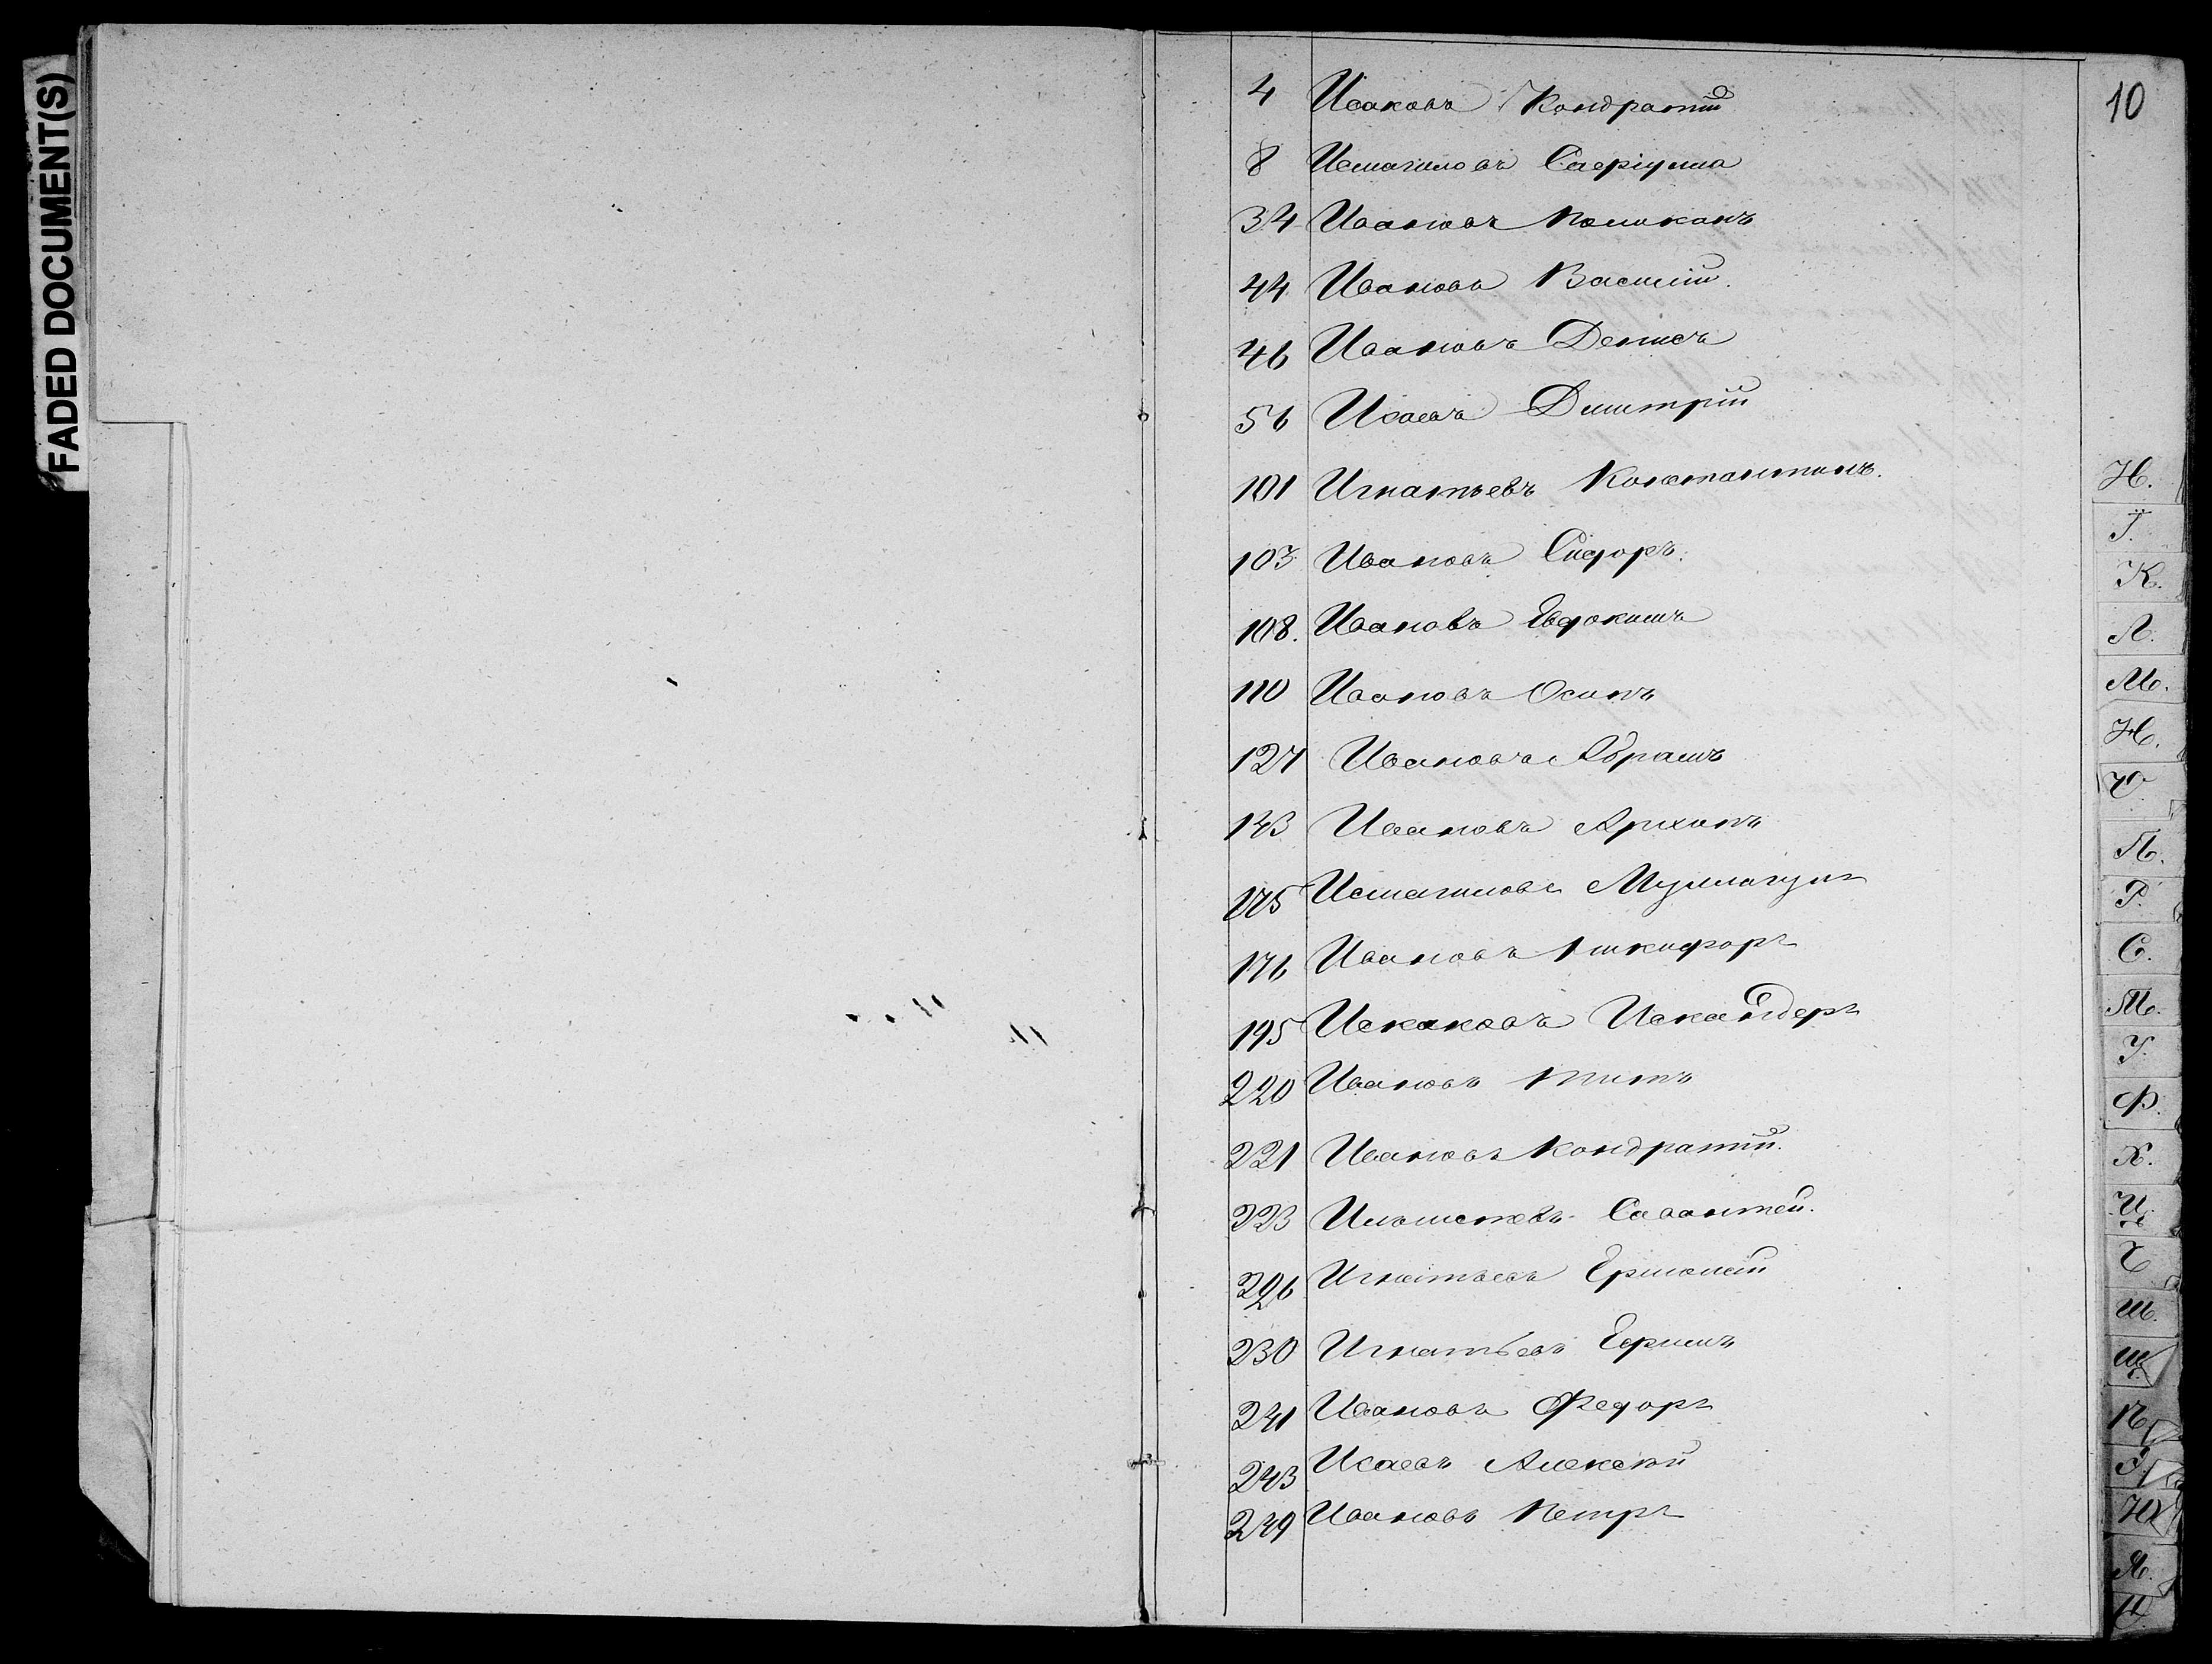 FADED DOCUMENT(S)
10
4 Исаковъ Кондратій
8 Исмагиловъ Сафіулла
34 Ивановъ
44 Ивановъ Василій.
46 Ивановъ Денисъ
56 Исаевъ Димитрій
101 Игнатьевъ Константинъ.
103 Ивановъ Сидоръ.
108. Ивановъ Евдокимъ
110 Ивановъ Осипъ
127 Ивановъ Абрамъ
143 Ивановъ Архипъ
175 Исмагиловъ
176 Ивановъ Никифоръ
195 Искаковъ Искандеръ
220 Ивановъ Титъ
221 Ивановъ Кондратій.
223 Савантей.
226 Игнатьевъ Ермолай
230 Игнатьевъ Ефимъ
241 Ивановъ Федоръ
243 Исаевъ Алексѣй
249 Ивановъ Петръ
И.
І.
К.
Л.
М.
Н.
О.
П.
Р.
С.
Т.
У.
Ф.
Х.
Ц.
Ч.
Ш.
Щ.
Ѣ.
Э.
Ю.
Я.